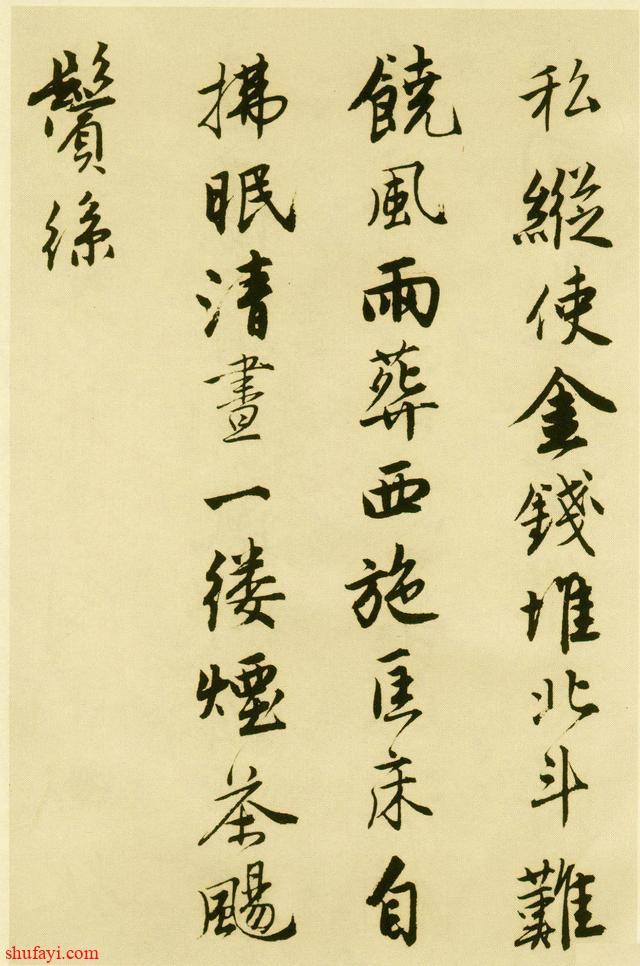 私縱使金錢堆北斗難
饒風雨葬西施匡床自
拂眠清晝一縷煙茶颺
鬢絲
shufayi.com